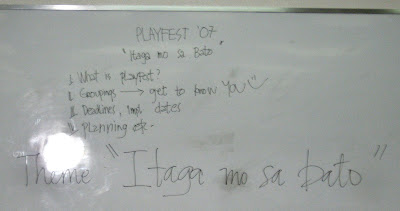 PLAYFEST '07
"Itaga mo sa Bato"
I. What is playfest?
II. Groupings → get to know you
III. Deadlines, impt dates
IV. Planning
Theme "Itaga mo sa bato"